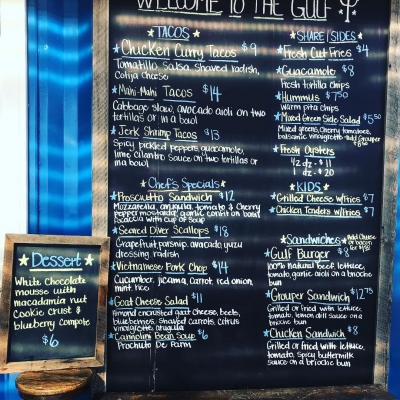 WELCOME TO THE GULF
TACOS
Chicken Curry Tacos $9
Tomatillo Salsa, Shaved radish,
Cotija Cheese
Mahi-Mahi Tacos $14
Cabbage slaw, avocado aioli on two
tortillas or in a bowl
Jerk Shrimp Tacos $13
Spicy pickled peppers, guacamole,
lime cilantro sauce on two tortillas or
in a bowl
Chef's Specials
Prosciutto Sandwich $12
Mozzarella, arugula, tomato & Cherry
pepper mostarda, garlic confit on basil
focaccia with cup of soup
Seared Diver Scallops $18
Grapefruit, parsnip, avocado, yuzu
dressing, radish
Vietnamese Pork Chop $14
Cucumber, jicama, carrot, red onion,
mint, rice
Goat Cheese Salad $11
Almond encrusted goat cheese, beets,
blueberries, shaved carrots, citrus
vinaigrette, arugula
Cannolini Bean Soup $6
Prochuto De Parm
SHARE / SIDES
Fresh Cut Fries $4
Guacamole $8
Fresh tortilla chips
Hummus $7.50
Warm pita chips
Mixed Green Side Salad $5.50
Mixed greens, Cherry tomatoes,
balsamic vinaigrette Add Grouper
Fresh Oysters
1/2 dz - $11
1 dz - $20
KIDS
Grilled Cheese w/Fries $7
Chicken Tenders w/Fries $7
Sandwiches
Add Cheese
or bacon
Gulf Burger $8
100% natural beef, lettuce,
tomato, garlic aioli on a brioche
bun
Grouper Sandwich $12.75
Grilled or fried with lettuce,
tomato, lemon dill sauce on a
brioche bun
Chicken Sandwich $8
Grilled or fried with lettuce,
tomato, Spicy buttermilk
sauce on a brioche bun
Dessert
White Chocolate
mousse with
macadamia nut
Cookie Crust &
blueberry compote
$6